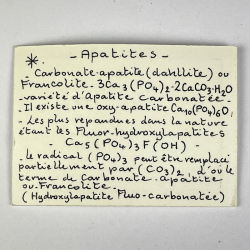 - Apatites -
*. - Carbonate-apatite (dahllite) ou
Francolite - 3Ca3(PO4)2·2CaCO3·H2O
- variété d'Apatite Carbonatée -
- Il existe une oxy-apatite Ca10(PO4)6O,
- Les plus repandues dans la nature
étant les Fluor-hydroxylapatites
- Ca5(PO4)3F(OH) -
- le radical (PO4)3 peut être remplacé
partiellement par (CO3)2, d'où le
terme de Carbonate-apatite
ou Francolite -
(Hydroxylapatite Fluo-carbonatée)